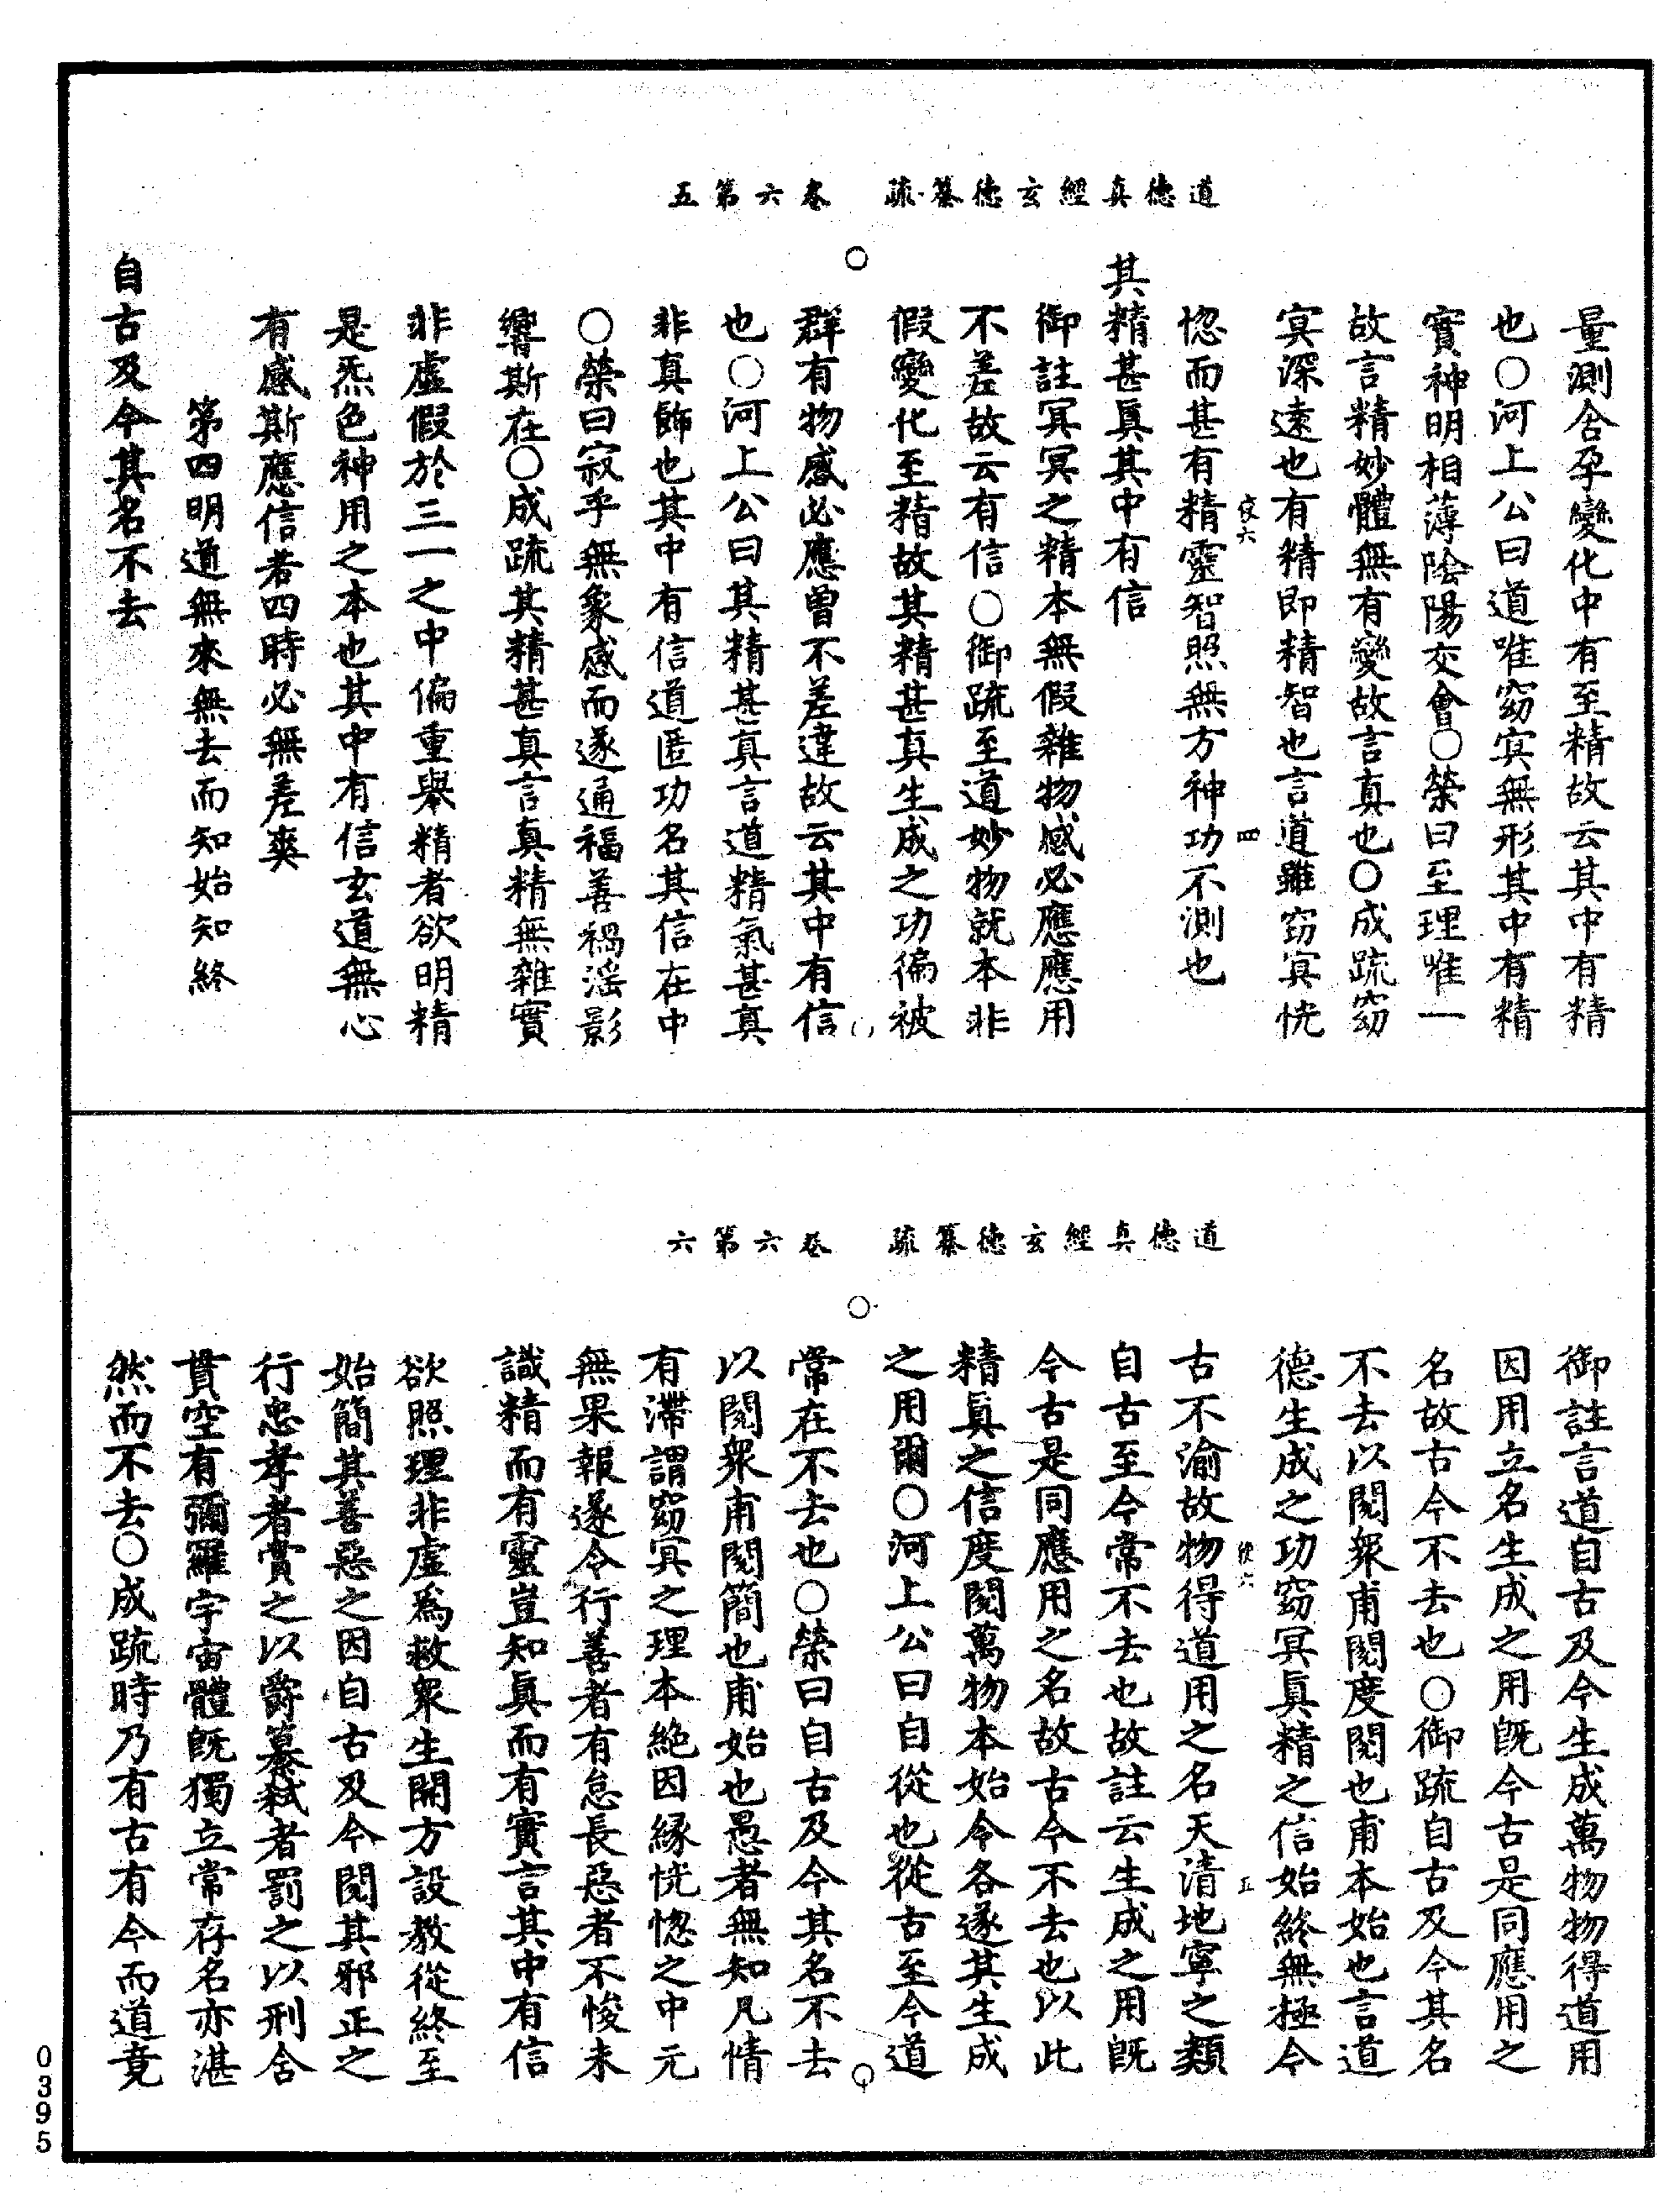 道德真經玄德纂疏　卷六第五
量測含孕變化中有至精故云其中有精
也○河上公曰道唯窈冥無形其中有精
實神明相薄陰陽交會○榮曰至理唯一
故言精妙體無有變故言真也○成疏窈
冥深遠也有精即精智也言道雖窈冥恍
惚而甚有精靈智照無方神功不測也
其精甚真其中有信
御註冥冥之精本無假雜物感必應應用
不差故云有信○御疏至道妙物就本非
假變化至精故其精甚真生成之功徧被
群有物感必應曾不差違故云其中有信
也○河上公曰其精甚真言道精氣甚真
非真飾也其中有信道匿功名其信在中
○榮曰寂乎無象感而遂通福善禍淫影
響斯在○成疏其精甚真言真精無雜實
非虛假於三一之中偏重舉精者欲明精
是炁色神用之本也其中有信玄道無心
有感斯應信若四時必無差爽
第四明道無來無去而知始知終
自古及今其名不去
道德真經玄德纂疏　卷六第六
御註言道自古及今生成萬物物得道用
因用立名生成之用既今古是同應用之
名故古今不去也○御疏自古及今其名
不去以閱衆甫閱度閱也甫本始也言道
德生成之功窈冥真精之信始終無極今
古不渝故物得道用之名天清地寧之類
自古至今常不去也故註云生成之用既
今古是同應用之名故古今不去也以此
精真之信度閱萬物本始令各遂其生成
之用爾○河上公曰自從也從古至今道
常在不去也○榮曰自古及今其名不去
以閱衆甫閱簡也甫始也愚者無知凡情
有滯謂窈冥之理本絶因緣恍惚之中元
無果報遂令行善者有怠長惡者不悛未
識精而有靈豈知真而有實言其中有信
欲照理非虛爲救衆生開方設教從終至
始簡其善惡之因自古及今閱其邪正之
行忠孝者賞之以爵纂弒者罰之以刑舍
貫空有彌羅宇宙體既獨立常存名亦湛
然而不去○成疏時乃有古有今而道竟
0395